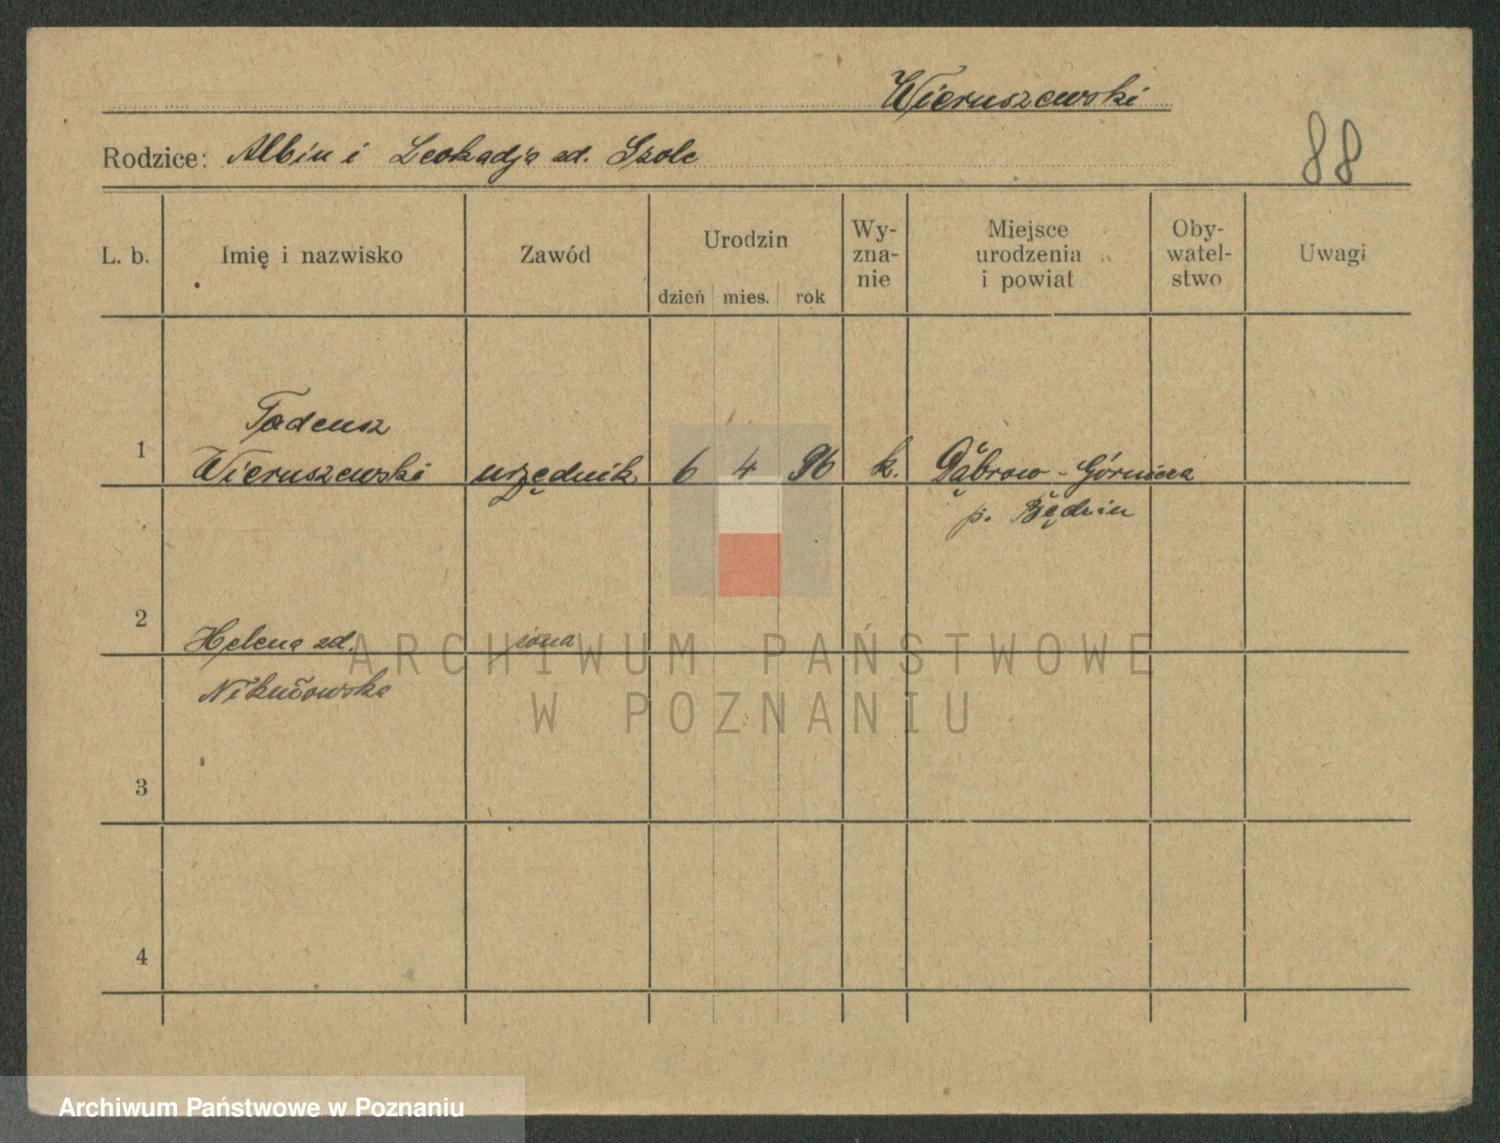 Wieruszewski
88
Rodzice: Albin i Leokadja zd. Szolc
L. b. Imię i nazwisko Zawód Urodzin Wy- Miejsce Oby- Uwagi
zna- urodzenia watel-
nie i powiat stwo
dzień mies. rok
Tadeusz
1 Wieruszewski urzędnik 6 4 96 k. Dąbrow-Górnicza
p. Będzin
2
Helena zd. żona
3
4
ARCHIWUM PAŃSTWOWE
W POZNANIU
Archiwum Państwowe w Poznaniu